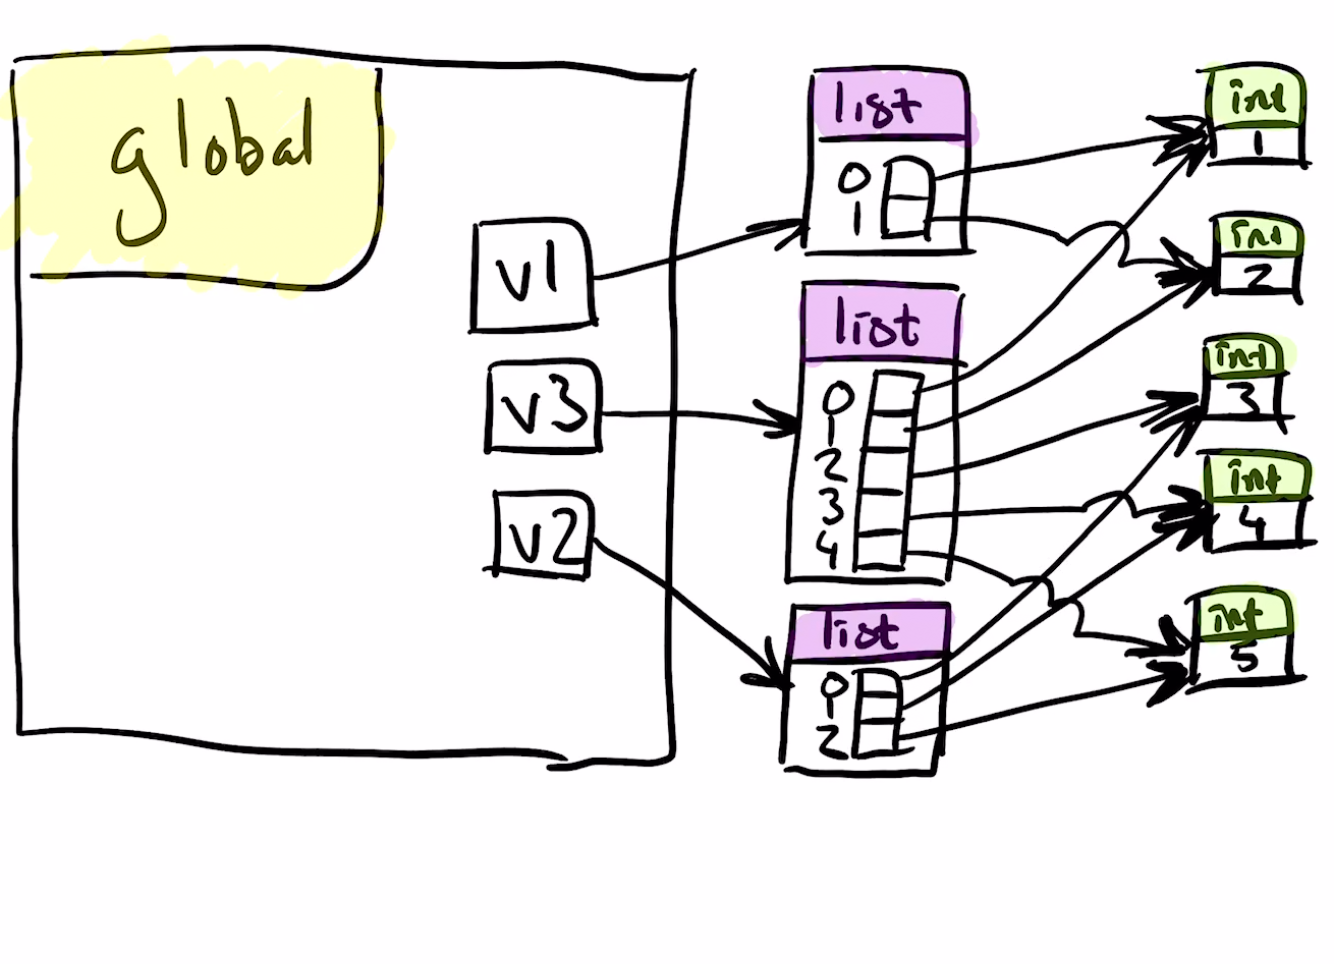 global
v1
v3
v2
list
0
1
list
0
1
2
3
4
list
0
1
2
int
1
int
2
int
3
int
4
int
5